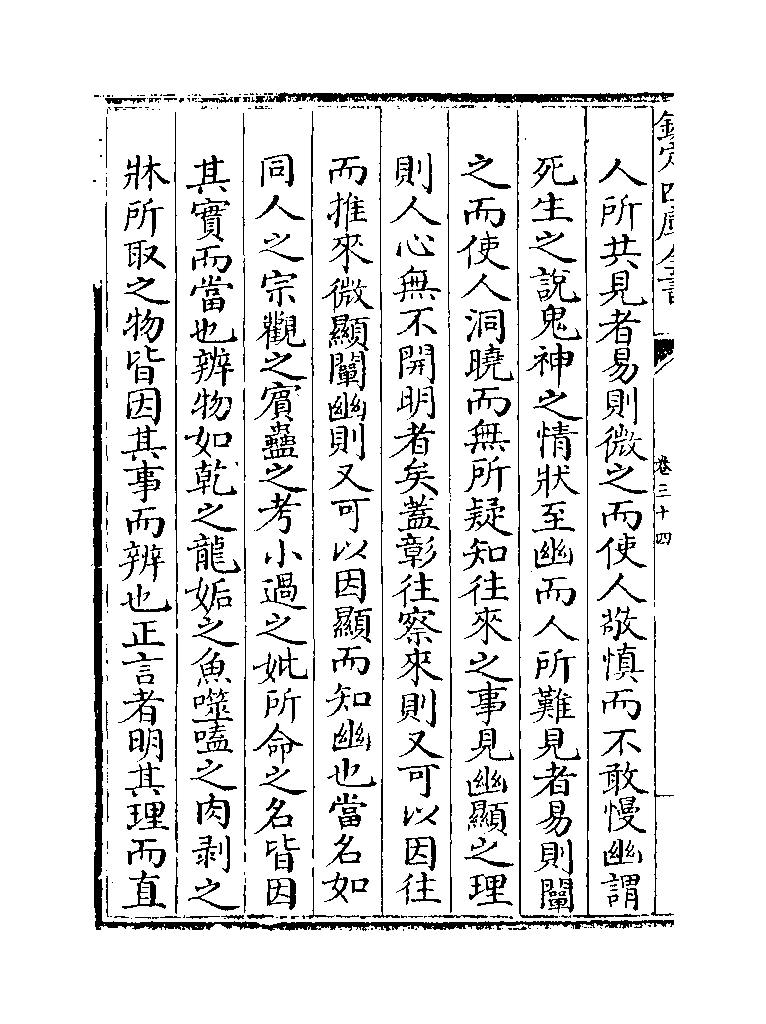 欽定四庫全書
卷三十四
人所共見者易則微之而使人敬慎而不敢慢幽謂
死生之說鬼神之情狀至幽而人所難見者易則闡
之而使人洞曉而無所疑知往來之事見幽顯之理
則人心無不開明者矣蓋彰往察來則又可以因往
而推來微顯闡幽則又可以因顯而知幽也當名如
同人之宗觀之賓蠱之考小過之妣所命之名皆因
其實而當也辨物如乾之龍姤之魚噬嗑之肉剥之
牀所取之物皆因其事而辨也正言者明其理而直